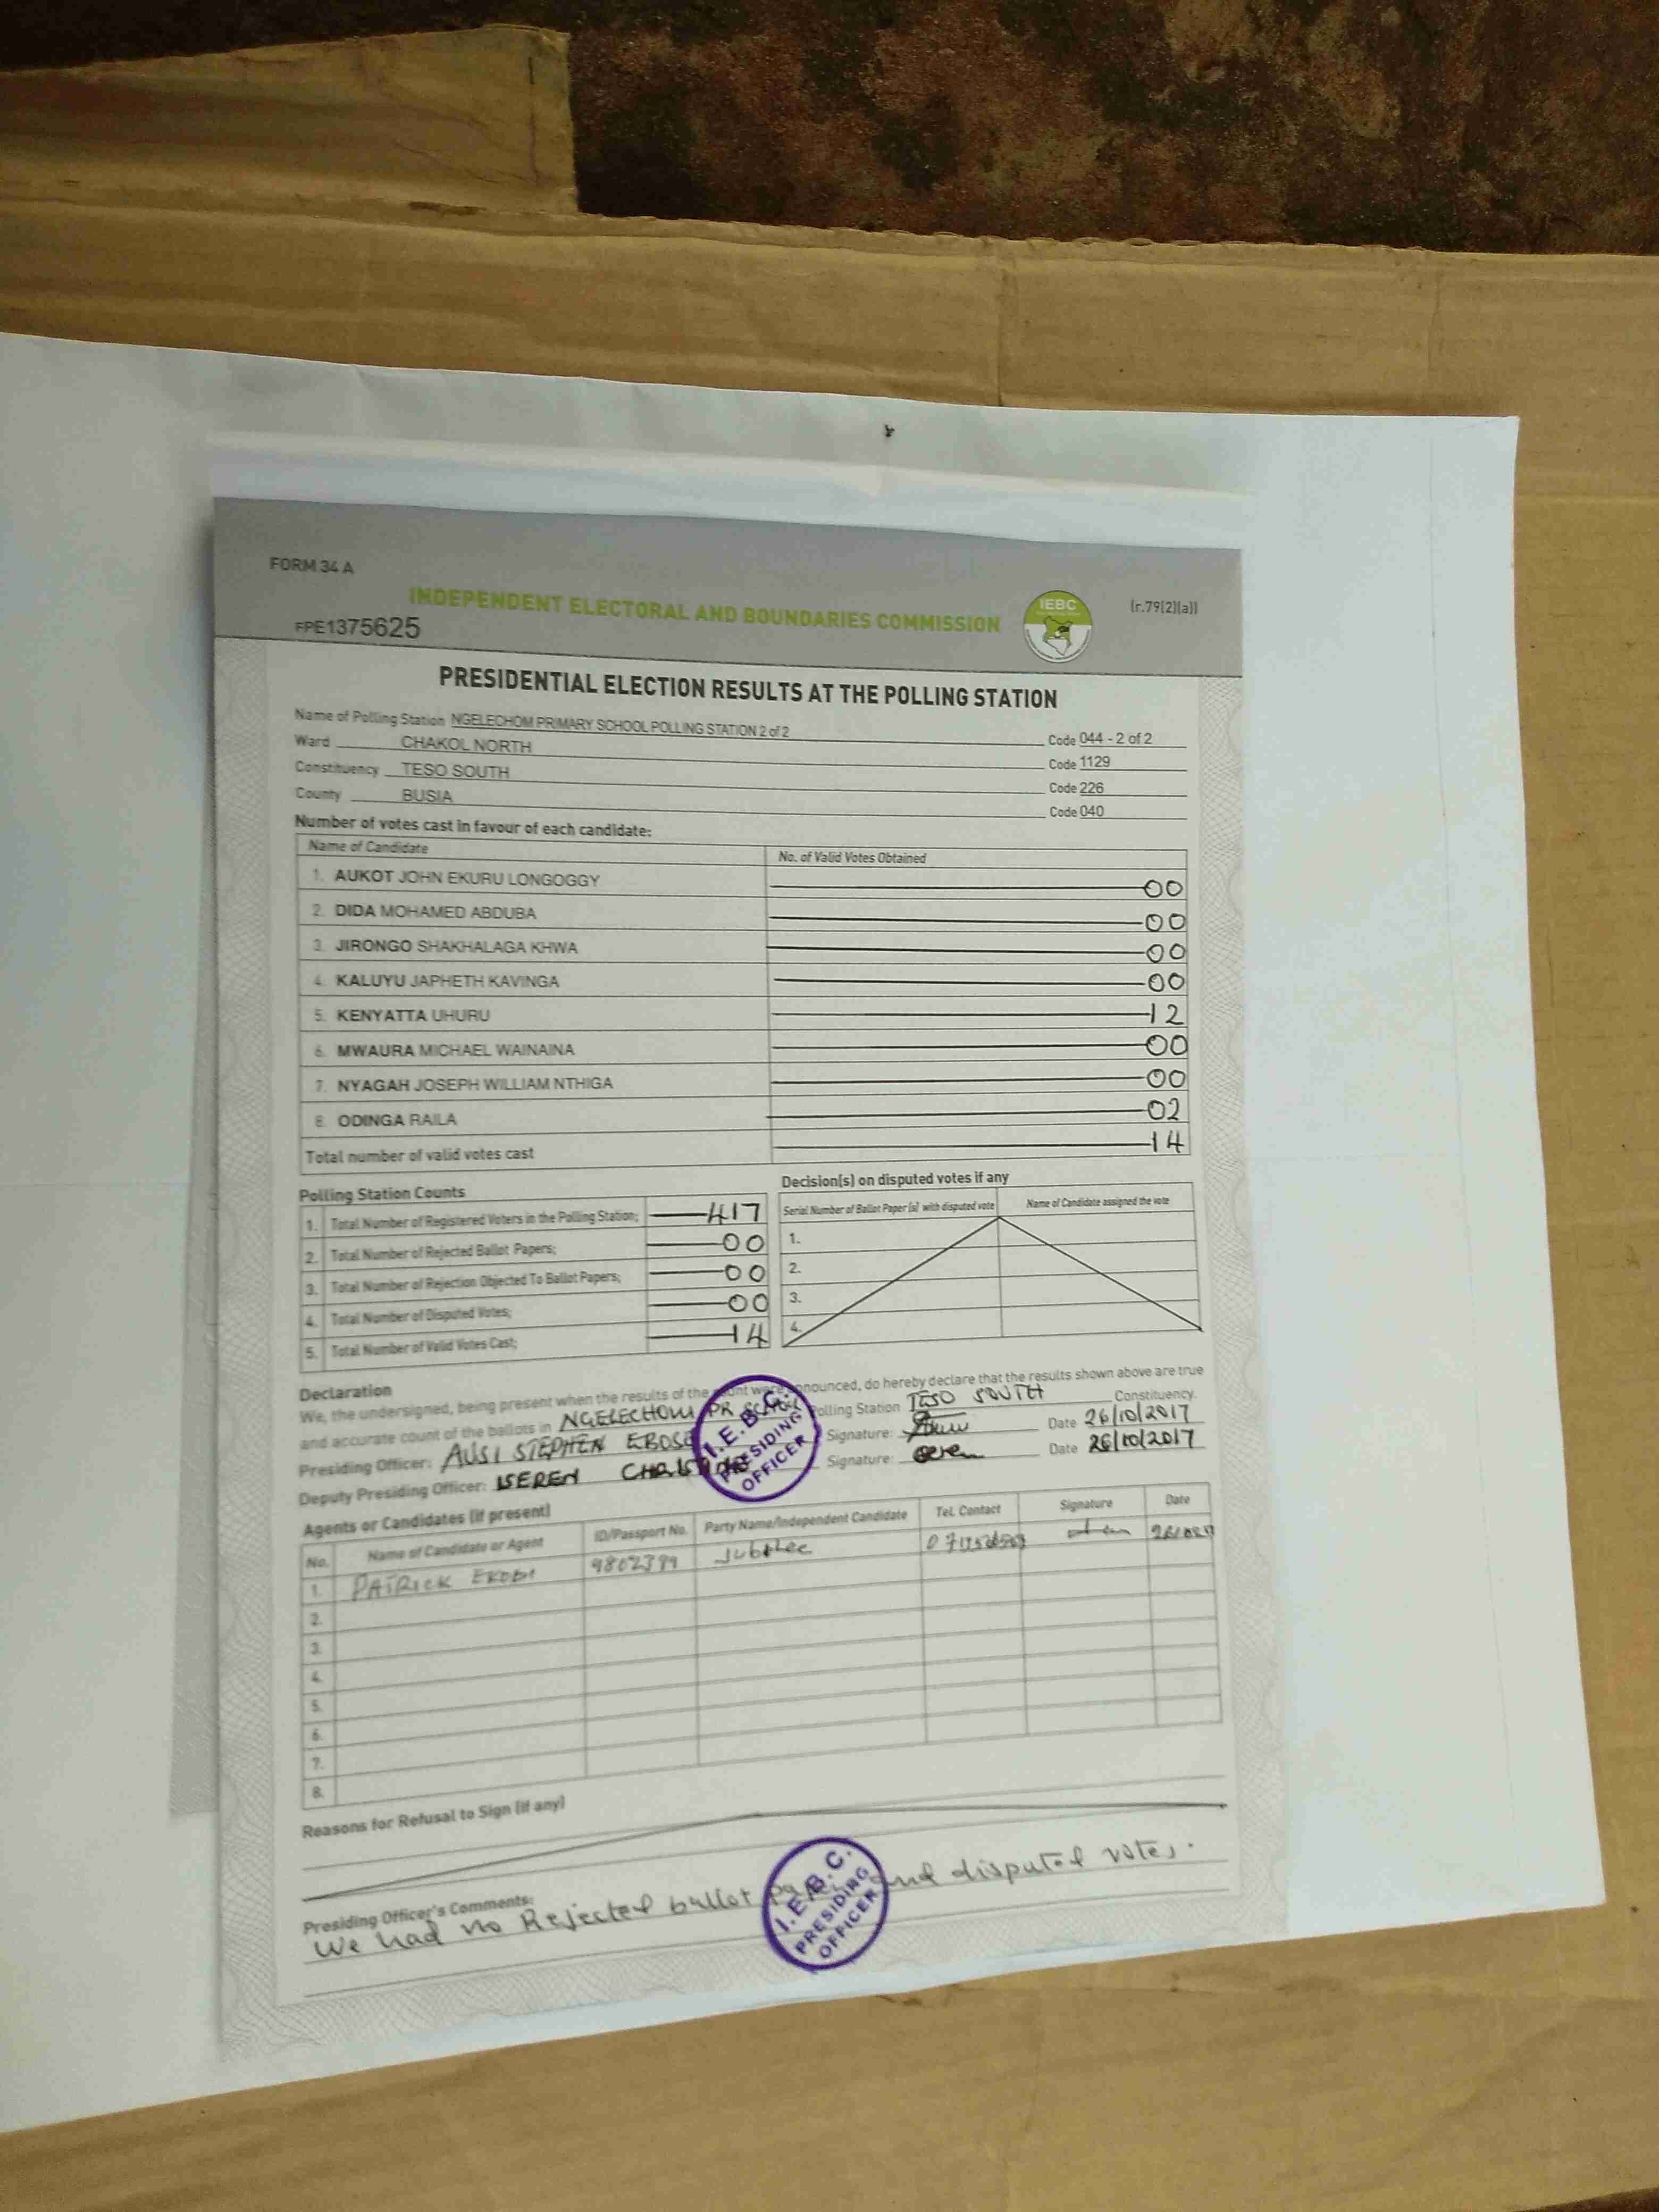 FORM 34 A
INDEPENDENT ELECTORAL AND BOUNDARIES COMMISSION
IEBC
(r.79(2)(a))
FPE1375625
PRESIDENTIAL ELECTION RESULTS AT THE POLLING STATION
Name of Polling Station NGELECHOM PRIMARY SCHOOL POLLING STATION 2 of 2 Code 044 - 2 of 2
Ward CHAKOL NORTH Code 1129
Constituency TESO SOUTH Code 226
County BUSIA Code 040
Number of votes cast in favour of each candidate:
Name of Candidate No. of Valid Votes Obtained
1. AUKOT JOHN EKURU LONGOGGY 00
2. DIDA MOHAMED ABDUBA 00
3. JIRONGO SHAKHALAGA KHWA 00
4. KALUYU JAPHETH KAVINGA 00
5. KENYATTA UHURU 12
6. MWAURA MICHAEL WAINAINA 00
7. NYAGAH JOSEPH WILLIAM NTHIGA 00
8. ODINGA RAILA 02
Total number of valid votes cast 14
Polling Station Counts
1. Total Number of Registered Voters in the Polling Station; 417
2. Total Number of Rejected Ballot Papers; 00
3. Total Number of Rejection Objected To Ballot Papers; 00
4. Total Number of Disputed Votes; 00
5. Total Number of Valid Votes Cast; 14
Decision(s) on disputed votes if any
Serial Number of Ballot Paper (s) with disputed vote Name of Candidate assigned the vote
1.
2.
3.
4.
Declaration
We, the undersigned, being present when the results of the count were announced, do hereby declare that the results shown above are true
and accurate count of the ballots in NGELECHOM PR Polling Station TESO SOUTH Constituency.
Presiding Officer: AUSI STEPHEN EBOSE Signature: Date 26/10/2017
Deputy Presiding Officer: ISEREN Signature: Date 26/10/2017
I.E.B.C.
PRESIDING
OFFICER
Agents or Candidates (if present)
No. Name of Candidate or Agent ID/Passport No. Party Name/Independent Candidate Tel. Contact Signature Date
1. PATRICK 9802399 Jubilee
2.
3.
4.
5.
6.
7.
8.
Reasons for Refusal to Sign (if any)
Presiding Officer's Comments:
We had no Rejected ballot and disputed votes.
I.E.B.C.
PRESIDING
OFFICER